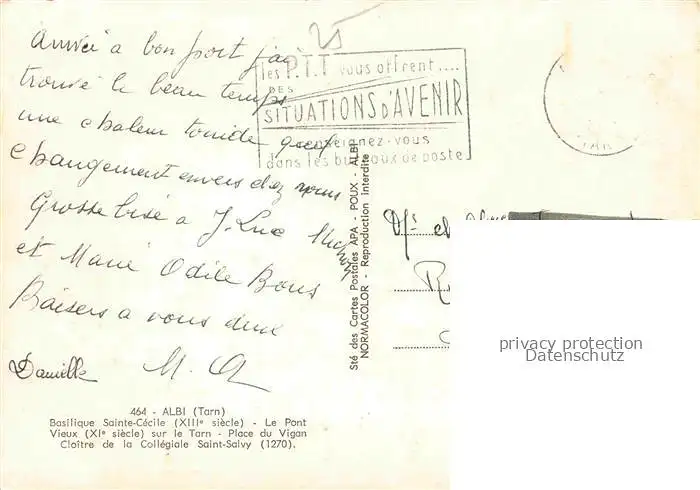 Arrivée a bon port j'ai
trouvé le beau temps
une chaleur torride quel
changement envers chez nous
Grosse bise a J. Luc
et Marie Odile Bons
Baisers a vous deux
Danielle M.
464 - ALBI (Tarn)
Basilique Sainte-Cécile (XIIIe siècle) - Le Pont
Vieux (XIe siècle) sur le Tarn - Place du Vigan
Cloître de la Collégiale Saint-Salvy (1270).
25
les P.T.T vous offrent....
DES
SITUATIONS D'AVENIR
renseignez-vous
dans les bureaux de poste
Sté. des Cartes Postales APA - POUX - ALBI
NORMACOLOR - Reproduction interdite
TARN
Mr et
privacy protection
Datenschutz